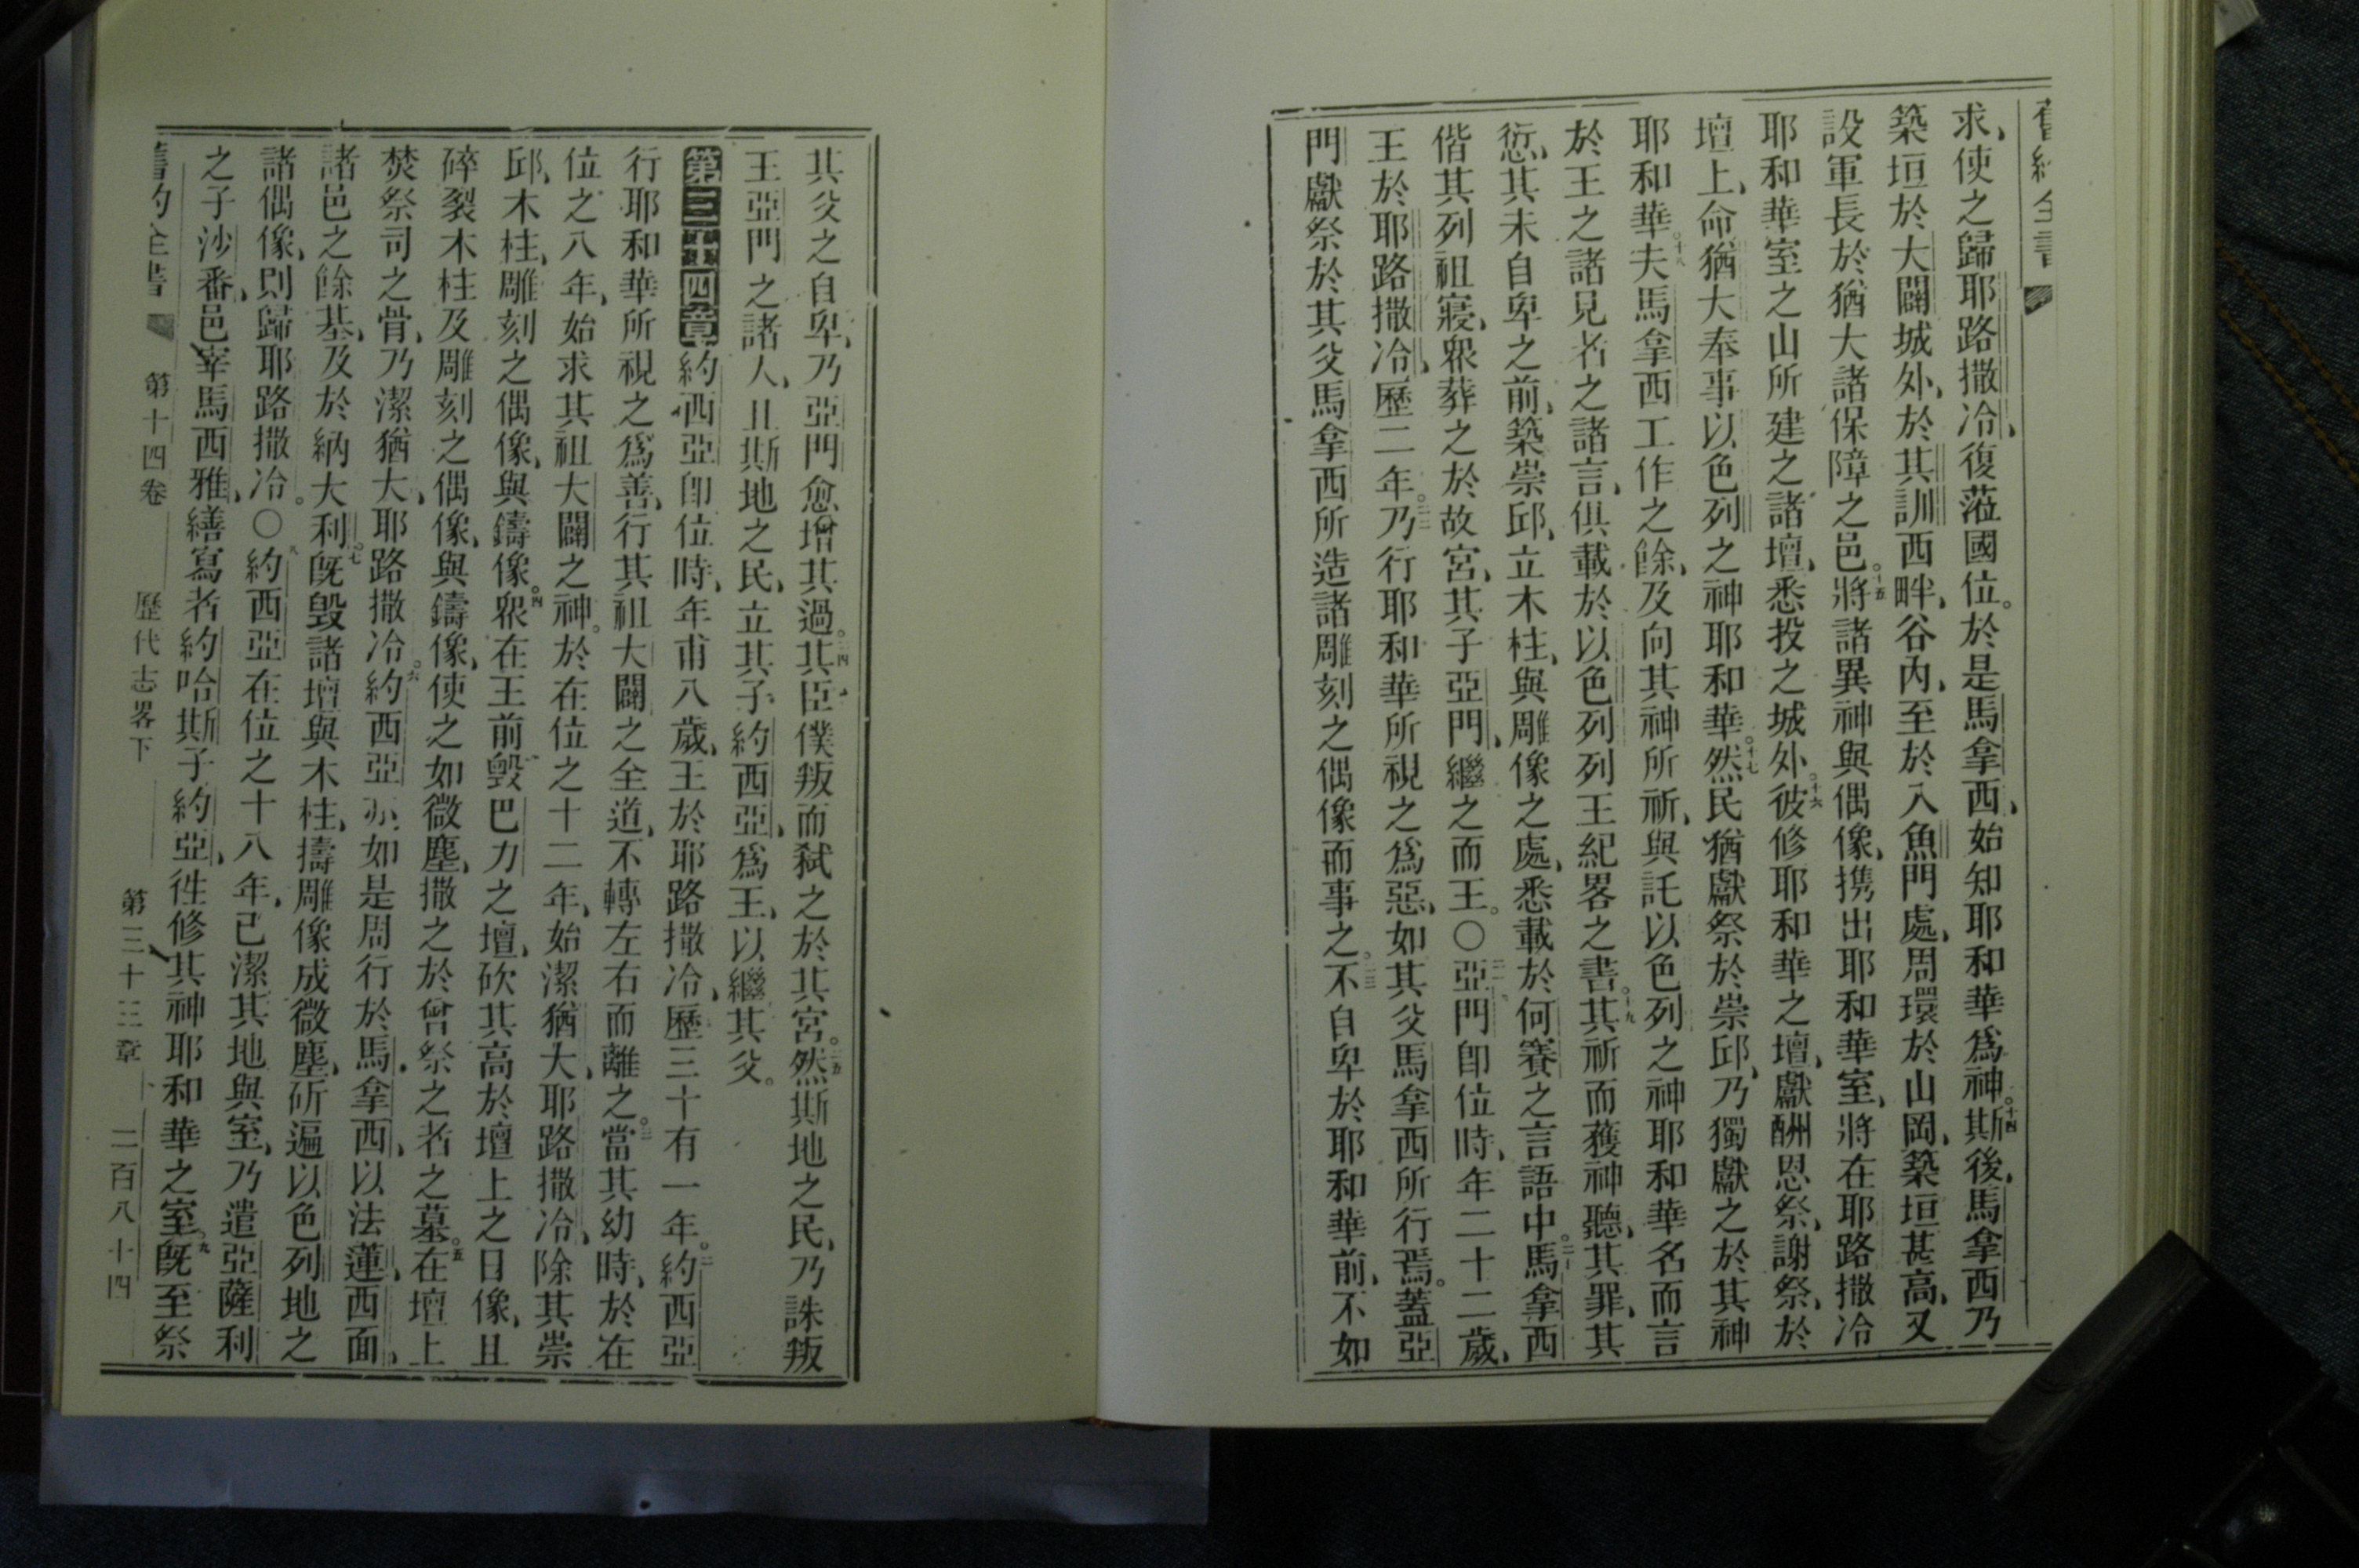 舊約全書
求、使之歸耶路撒冷、復蒞國位。於是馬拿西、始知耶和華爲神。十四斯後、馬拿西乃
築垣於大闢城外、於其訓西畔、谷內、至於入魚門處、周環於山岡、築垣甚高、又
設軍長於猶大諸保障之邑。十五將諸異神與偶像、携出耶和華室、將在耶路撒冷
耶和華室之山所建之諸壇、悉投之城外。十六彼修耶和華之壇、獻酬恩祭、謝祭、於
壇上、命猶大奉事以色列之神耶和華。十七然民猶獻祭於崇邱、乃獨獻之於其神
耶和華。十八夫馬拿西工作之餘、及向其神所祈、與託以色列之神耶和華名而言
於王之諸見者之諸言、俱載於以色列列王紀畧之書。十九其祈而獲神聽、其罪、其
愆、其未自卑之前、築崇邱、立木柱、與雕像之處、悉載於何賽之言語中。二十馬拿西
偕其列祖寢、衆葬之於故宮、其子亞門、繼之而王。〇二一亞門卽位時、年二十二歲、
王於耶路撒冷、歷二年。二二乃行耶和華所視之爲惡、如其父馬拿西所行焉。蓋亞
門獻祭於其父馬拿西所造諸雕刻之偶像而事之。二三不自卑於耶和華前、不如
其父之自卑、乃亞門愈增其過。二四其臣僕叛而弑之於其宮。二五然斯地之民、乃誅叛
王亞門之諸人、且斯地之民、立其子約西亞、爲王、以繼其父。
第三十四章約西亞卽位時、年甫八歲、王於耶路撒冷、歷三十有一年。二約西亞
行耶和華所視之爲善、行其祖大闢之全道、不轉左右而離之。三當其幼時、於在
位之八年、始求其祖大闢之神。於在位之十二年、始潔猶大、耶路撒冷、除其崇
邱、木柱、雕刻之偶像、與鑄像。四衆在王前毀巴力之壇、砍其高於壇上之日像、且
碎裂木柱及雕刻之偶像、與鑄像、使之如微塵、撒之於曾祭之者之墓。五在壇上
焚祭司之骨、乃潔猶大、耶路撒冷。六約西亞亦如是周行於馬拿西、以法蓮、西面、
諸邑之餘基、及於納大利。七旣毀諸壇與木柱、擣雕像成微塵、斫遍以色列地之
諸偶像、則歸耶路撒冷。〇八約西亞在位之十八年、已潔其地與室、乃遣亞薩利
之子沙番、邑宰馬西雅、繕寫者約哈斯子約亞、往修其神耶和華之室。九旣至祭
舊約全書 第十四卷 歷代志畧下 第三十三章 二百八十四